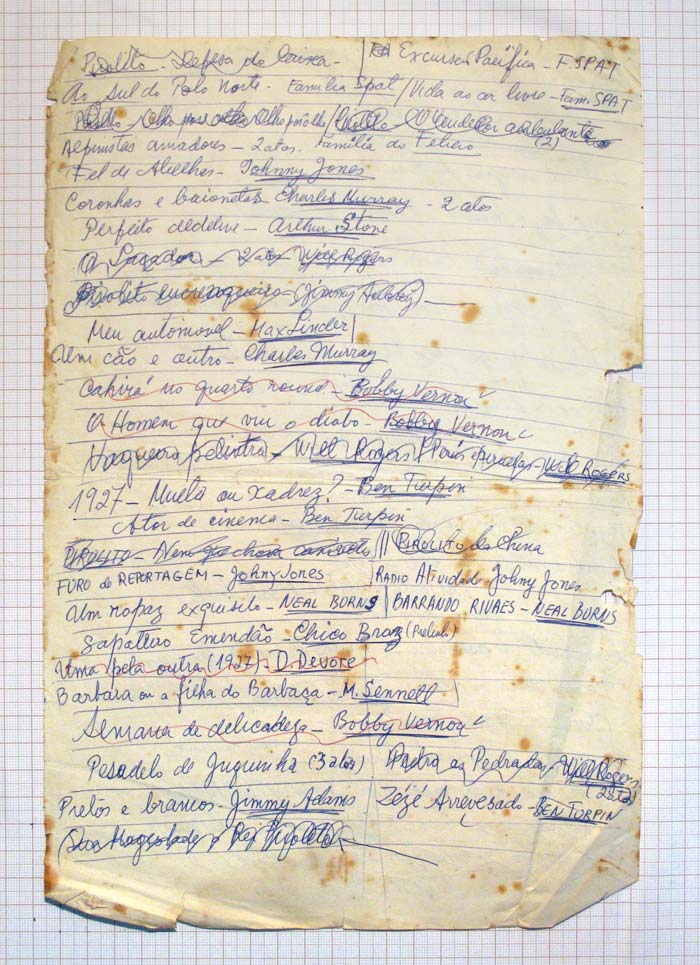 Pirolito - Defesa do Caixa - / Excursão Pacifica - F. SPAT
Ao sul do Polo Norte - Familia Spat / Vida ao ar livre - Fam. SPAT
olho por olho / O Vendedor
Alpinistas amadores - 2 atos - Familia do (2)
Fel de Abelhas - Johnny Jones
Coronhas e baionetas Charles Murray - 2 atos
Perfeito - Arthur Stone
O - 2 atos - Will Rogers
Pirolito encrenqueiro - (Jimmy Aubrey)
Meu automovel - Max Linder
Um cão e outro - Charles Murray
Cahirá no quarto round - Bobby Vernon
O Homem que viu o diabo - Bobby Vernon
Vaqueiro pelintra - Will Rogers Will ROGERS
1927 - Muéla ou xadrez? - Ben Turpin
Ator de cinema - Ben Turpin
PIROLITO - Nem que chova canivete ||| PIROLITO da China
FURO de REPORTAGEM - Johny Jones | RADIO Atividade - Johny Jones
Um rapaz exquisito - NEAL BURNS | BARRANDO RIVAES - NEAL BURNS
Sapatteiro Emendão - Chico Braz
Uma pela outra (1927) - D. Devore
Barbara ou a filha do Barbaça - M. Sennett
Semana de delicadeza - Bobby Vernon
Pesadelo de Juquinha (3 atos) Pedra as Pedradas - Will Rogers
(2 atos)
Pretos e brancos - Jimmy Adams Zézé Arrevesado - BEN TURPIN